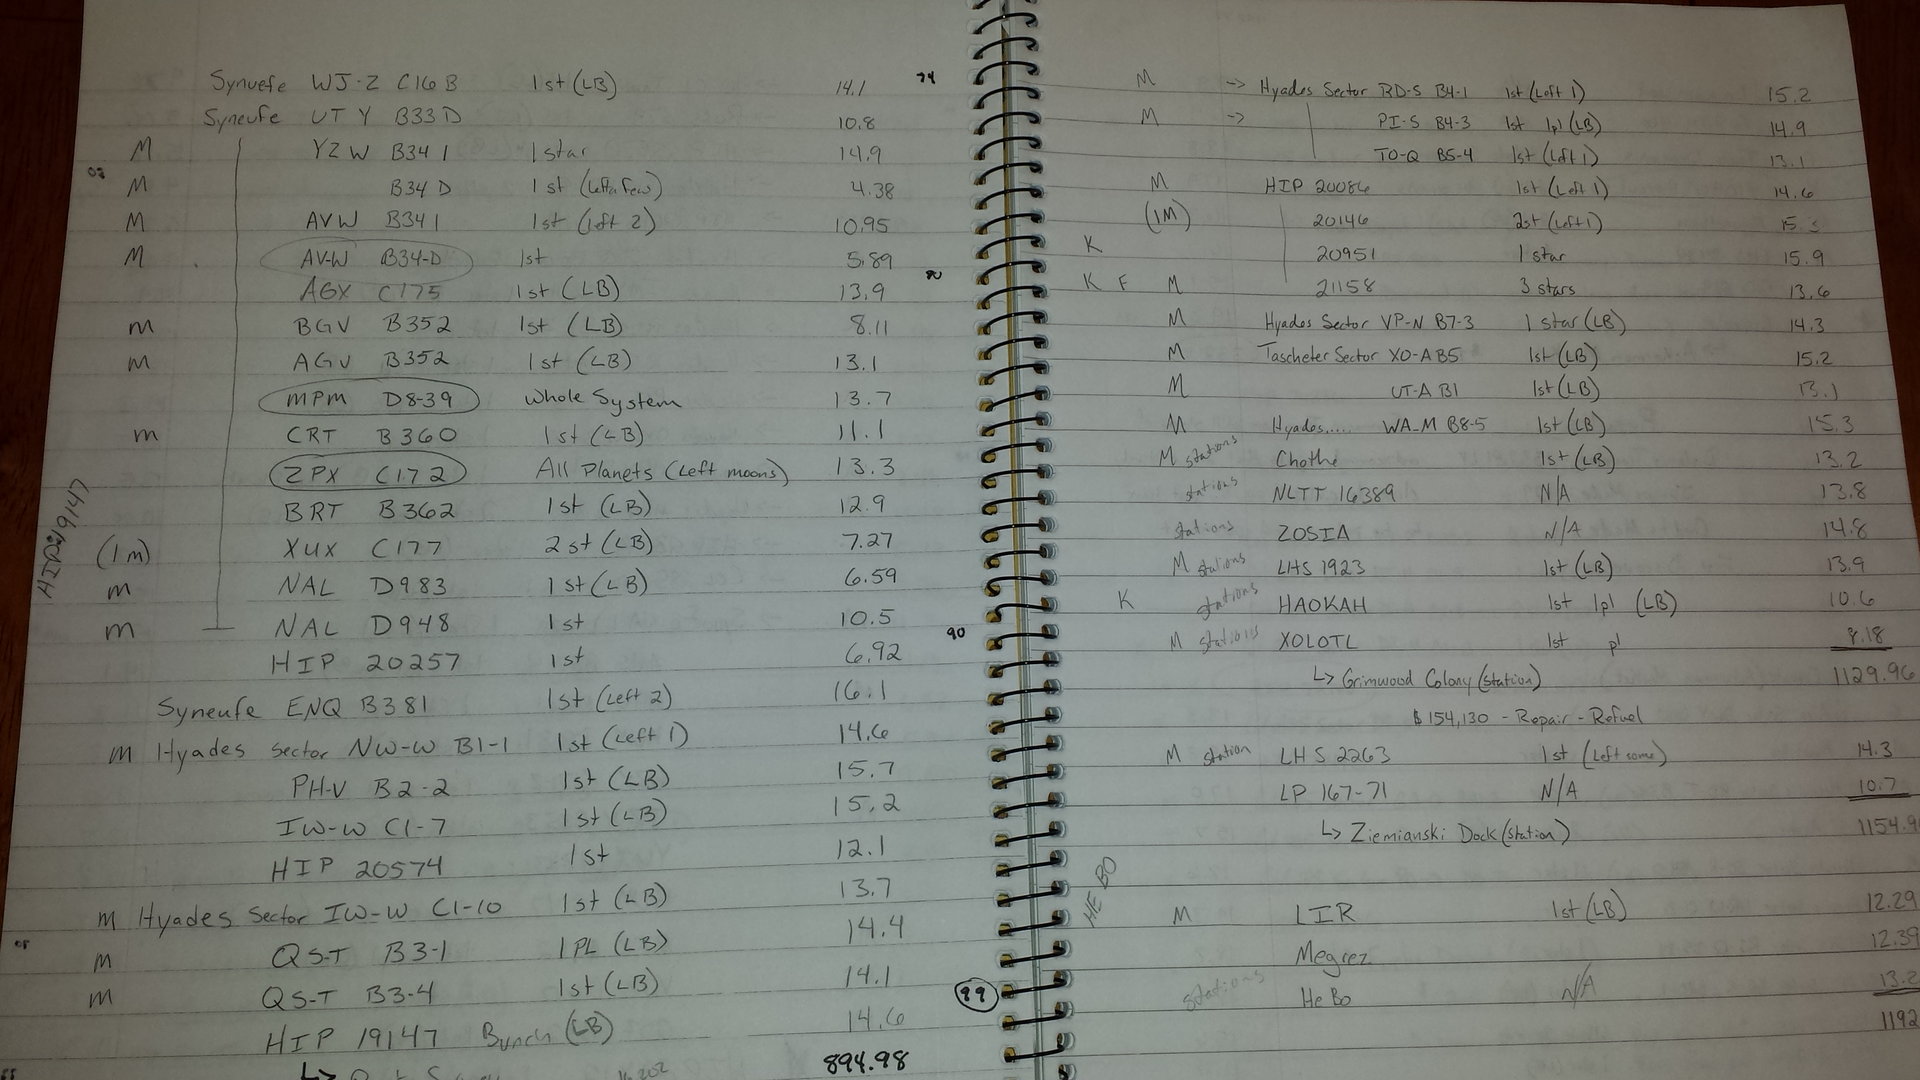 Synuefe WJ-Z C16 B 1st (LB) 14.1
Syneufe UT Y B33 D 10.8
M YZ W B34 1 1 star 14.9
M B34 D 1 st (Left a few) 4.38
M AVW B341 1st (left 2) 10.95
M AV-W B34-D 1st 5.89
AGX C175 1st (LB) 13.9
m BGV B352 1st (LB) 8.11
m AGV B352 1st (LB) 13.1
MPM D8-39 Whole System 13.7
m CRT B360 1st (LB) 11.1
ZPX C172 All Planets (Left moons) 13.3
BRT B362 1st (LB) 12.9
(1m) XUX C177 2st (LB) 7.27
m NAL D983 1st (LB) 6.59
m NAL D948 1st 10.5
HIP 20257 1st 6.92
Syneufe ENQ B381 1st (Left 2) 16.1
m Hyades sector NW-W B1-1 1st (Left 1) 14.6
PH-V B2-2 1st (LB) 15.7
IW-W C1-7 1st (LB) 15.2
HIP 20574 1st 12.1
m Hyades Sector IW-W C1-10 1st (LB) 13.7
m QS-T B3-1 1PL (LB) 14.4
m QS-T B3-4 1st (LB) 14.1
HIP 19147 Bunch (LB) 14.6
894.98
HIP 19147
74
80
90
99
M -> Hyades Sector RD-S B4-1 1st (Left 1) 15.2
M -> PI-S B4-3 1st 1pl (LB) 14.9
TO-Q B5-4 1st (Left 1) 13.1
M HIP 20086 1st (Left 1) 14.6
(1M) 20146 2st (Left 1)
K 20951 1 star 15.9
K F M 21158 3 stars 13.6
M Hyades Sector VP-N B7-3 1 star (LB) 14.3
M Tascheter Sector XO-A B5 1st (LB) 15.2
M UT-A B1 1st (LB) 13.1
M Hyades..... WA-M B8-5 1st (LB) 15.3
M stations Chothe 1st (LB) 13.2
stations NLTT 16389 N/A 13.8
stations ZOSIA N/A 14.8
M stations LHS 1923 1st (LB) 13.9
K stations HAOKAH 1st 1pl (LB) 10.6
M stations XOLOTL 1st pl 8.18
↳ Grimwood Colony (station) 1129.96
$ 154,130 - Repair - Refuel
M station LHS 2263 1st (Left some) 14.3
LP 167-71 N/A 10.7
↳ Ziemianski Dock (station) 1154.9
HE BO
M LIR 1st (LB) 12.29
Megrez 12.39
stations He Bo N/A 13.2
1192